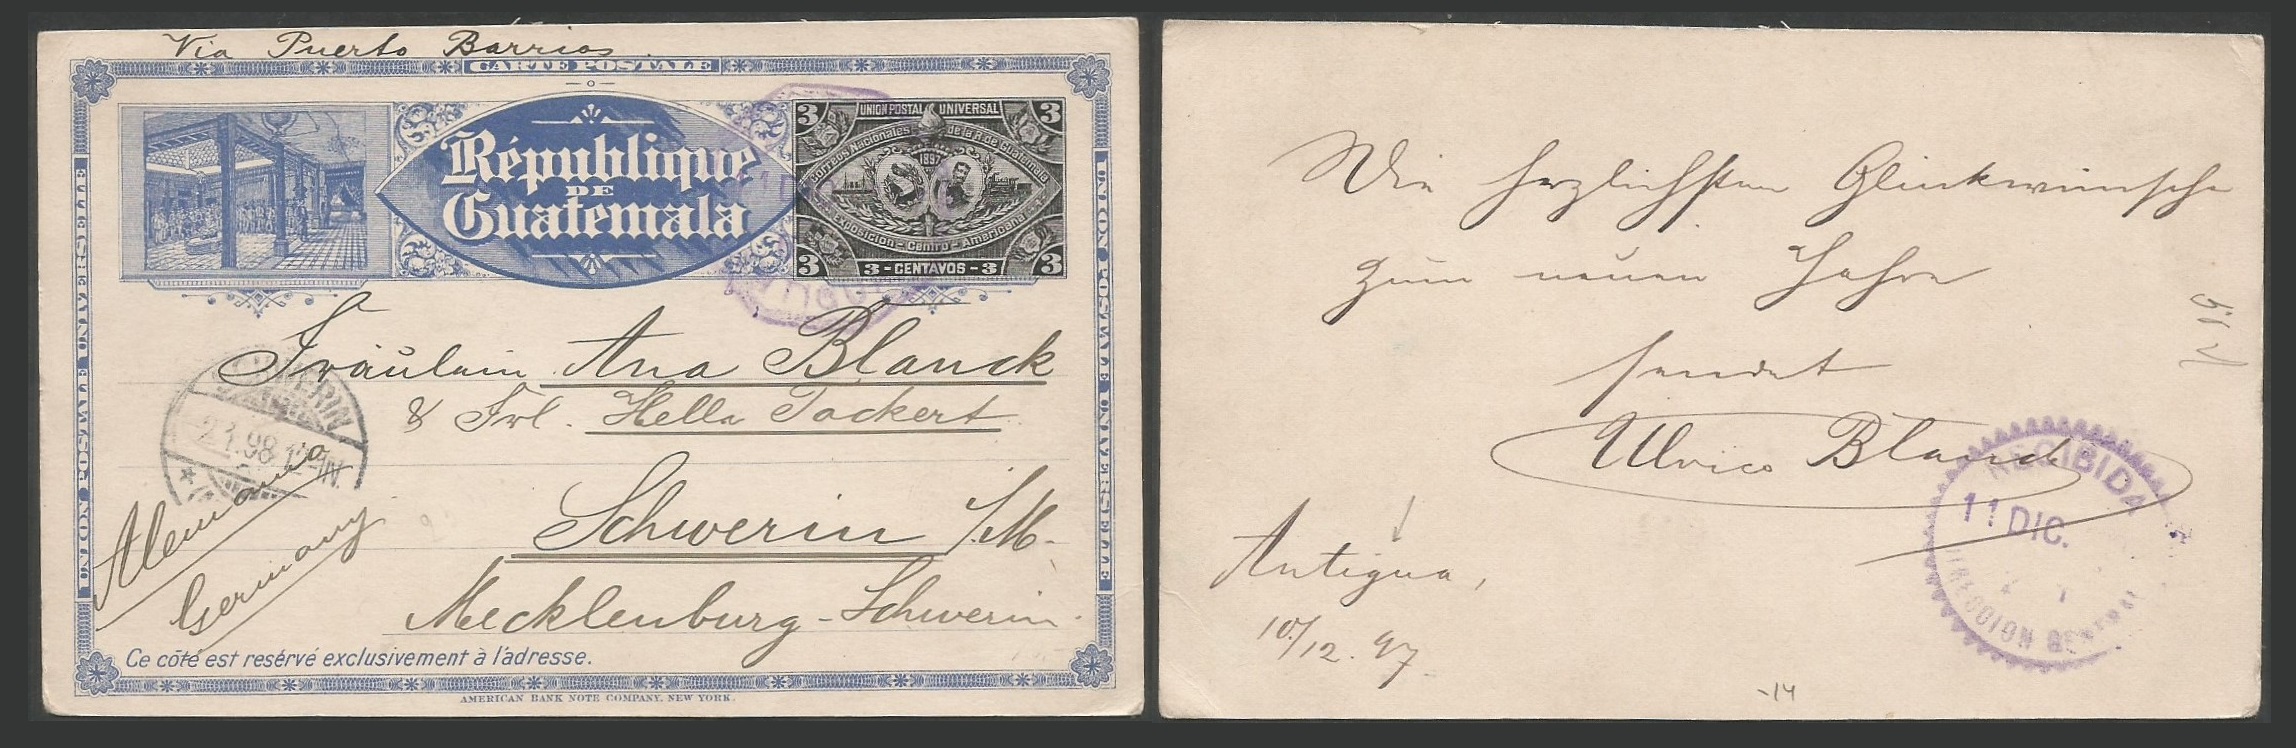 Via Puerto Barrios.
CARTE POSTALE
UNION POSTALE UNIVERSELLE
République
DE
Guatemala
3 UNION POSTAL UNIVERSAL 3
Correos Nacionales de la R. de Guatemala
1897
Exposicion - Centro - Americana
3 3 - CENTAVOS - 3 3
UNION POSTALE UNIVERSELLE
Fräulein Ana Blanck
& Frl. Hella Tackert
SCHWERIN
2.1.98.12-1N.
Schwerin i/M.
Mecklenburg-Schwerin.
Alemania
Germany
Ce côté est resérvé exclusivement à l'adresse.
AMERICAN BANK NOTE COMPANY, NEW YORK.
Die herzlichsten Glückwünsche
zum neuen Jahre
sendet
Ulrico Blanck
RECIBIDA
11 DIC.
DIRECCION GENERAL
Antigua,
10/12. 97.
-14